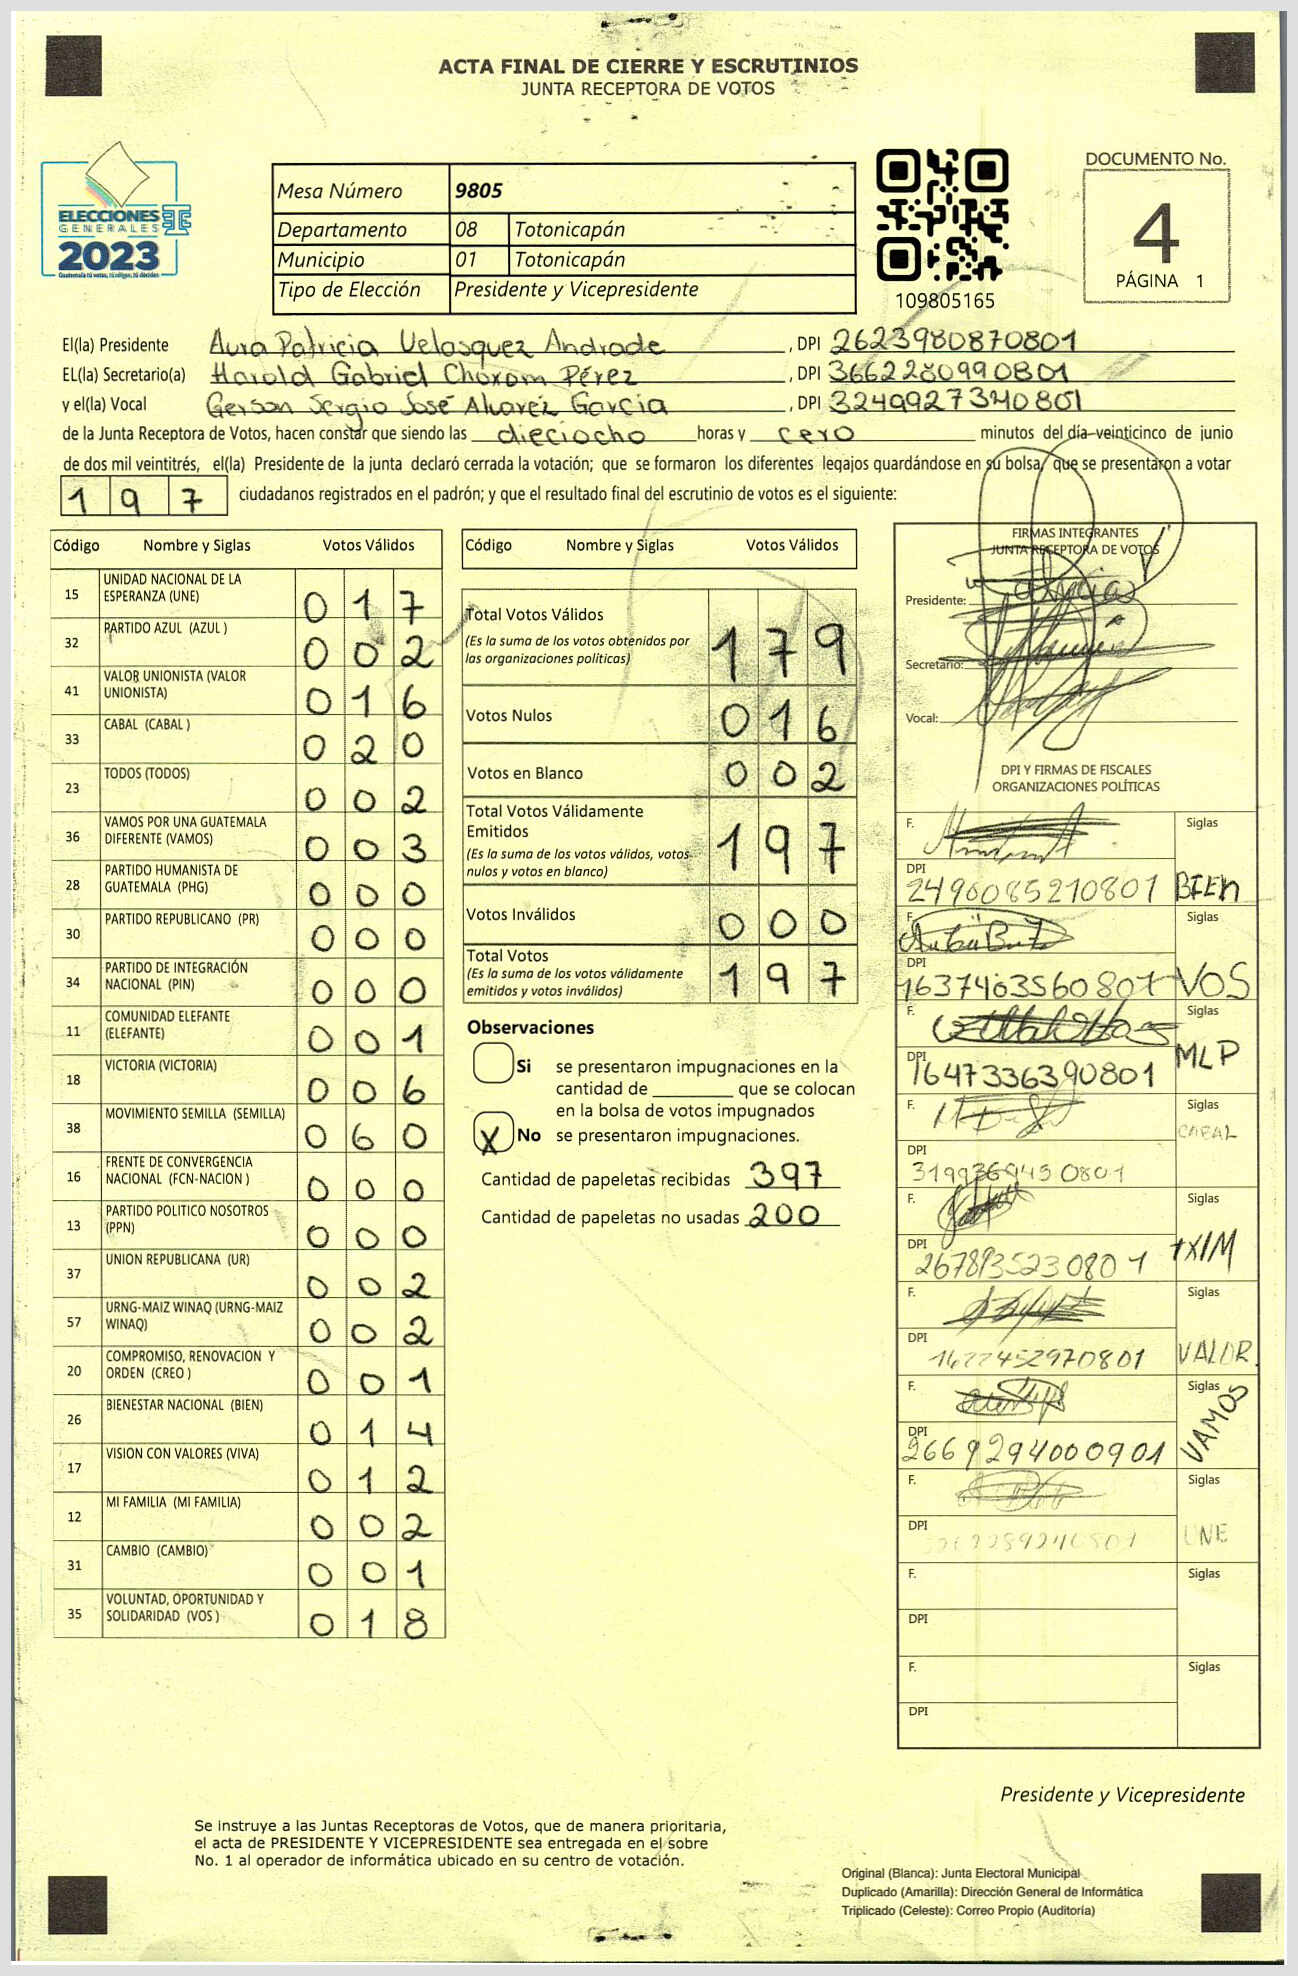 ACTA FINAL DE CIERRE Y ESCRUTINIOS
JUNTA RECEPTORA DE VOTOS
ELECCIONES
GENERALES
2023
Guatemala tú votas, tú eliges, tú decides
Mesa Número 9805
Departamento 08 Totonicapán
Municipio 01 Totonicapán
Tipo de Elección Presidente y Vicepresidente
109805165
DOCUMENTO No.
4
PÁGINA 1
El(la) Presidente Aura Patricia Velasquez Andrade, DPI 2623980870801
EL(la) Secretario(a) Harold Gabriel Choxom Pérez, DPI 3662280990801
y el(la) Vocal Gerson Sergio José Alvarez García, DPI 3249927340801
de la Junta Receptora de Votos, hacen constar que siendo las dieciocho horas y cero minutos del día veinticinco de junio
de dos mil veintitrés, el(la) Presidente de la junta declaró cerrada la votación; que se formaron los diferentes legajos guardándose en su bolsa, que se presentaron a votar
197 ciudadanos registrados en el padrón; y que el resultado final del escrutinio de votos es el siguiente:
Código Nombre y Siglas Votos Válidos
15 UNIDAD NACIONAL DE LA ESPERANZA (UNE) 017
32 PARTIDO AZUL (AZUL ) 002
41 VALOR UNIONISTA (VALOR UNIONISTA) 016
33 CABAL (CABAL ) 020
23 TODOS (TODOS) 002
36 VAMOS POR UNA GUATEMALA DIFERENTE (VAMOS) 003
28 PARTIDO HUMANISTA DE GUATEMALA (PHG) 000
30 PARTIDO REPUBLICANO (PR) 000
34 PARTIDO DE INTEGRACIÓN NACIONAL (PIN) 000
11 COMUNIDAD ELEFANTE (ELEFANTE) 001
18 VICTORIA (VICTORIA) 006
38 MOVIMIENTO SEMILLA (SEMILLA) 060
16 FRENTE DE CONVERGENCIA NACIONAL (FCN-NACION ) 000
13 PARTIDO POLITICO NOSOTROS (PPN) 000
37 UNION REPUBLICANA (UR) 002
57 URNG-MAIZ WINAQ (URNG-MAIZ WINAQ) 002
20 COMPROMISO, RENOVACION Y ORDEN (CREO ) 001
26 BIENESTAR NACIONAL (BIEN) 014
17 VISION CON VALORES (VIVA) 012
12 MI FAMILIA (MI FAMILIA) 002
31 CAMBIO (CAMBIO) 001
35 VOLUNTAD, OPORTUNIDAD Y SOLIDARIDAD (VOS ) 018
Código Nombre y Siglas Votos Válidos
Total Votos Válidos 179
(Es la suma de los votos obtenidos por
las organizaciones políticas)
Votos Nulos 016
Votos en Blanco 002
Total Votos Válidamente
Emitidos 197
(Es la suma de los votos válidos, votos
nulos y votos en blanco)
Votos Inválidos 000
Total Votos 197
(Es la suma de los votos válidamente
emitidos y votos inválidos)
Observaciones
Si se presentaron impugnaciones en la
cantidad de ________ que se colocan
en la bolsa de votos impugnados
X No se presentaron impugnaciones.
Cantidad de papeletas recibidas 397
Cantidad de papeletas no usadas 200
FIRMAS INTEGRANTES
JUNTA RECEPTORA DE VOTOS
Presidente:
Secretario:
Vocal:
DPI Y FIRMAS DE FISCALES
ORGANIZACIONES POLÍTICAS
F. Siglas
DPI 2490085210801 BIEN
F. Siglas
DPI 1637403560807 VOS
F. Siglas
DPI 1647336390801 MLP
F. Siglas
DPI CABAL
F. Siglas
DPI 2678935230801 TXIM
F. Siglas
DPI 1622452970801 VALOR
F. Siglas
DPI 2669294000901 VAMOS
F. Siglas
DPI UNE
F. Siglas
DPI
F. Siglas
DPI
Presidente y Vicepresidente
Se instruye a las Juntas Receptoras de Votos, que de manera prioritaria,
el acta de PRESIDENTE Y VICEPRESIDENTE sea entregada en el sobre
No. 1 al operador de informática ubicado en su centro de votación.
Original (Blanca): Junta Electoral Municipal
Duplicado (Amarilla): Dirección General de Informática
Triplicado (Celeste): Correo Propio (Auditoría)